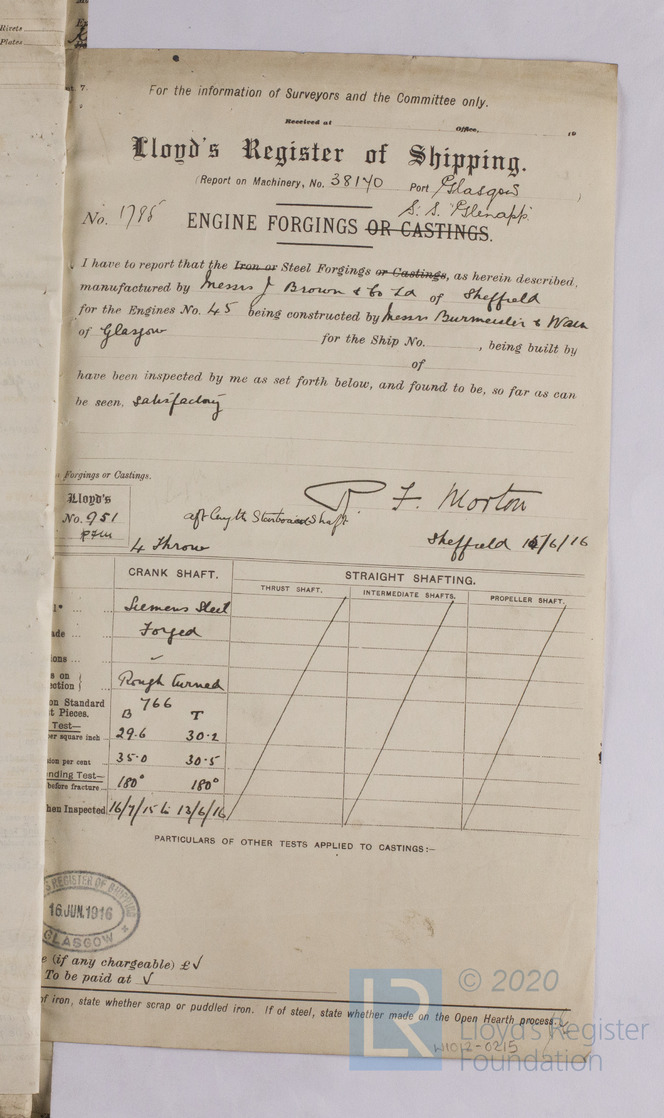 Rivets
Plates
For the information of Surveyors and the Committee only.
Received at Office, 19
Lloyd's Register of Shipping.
(Report on Machinery, No. 38140 Port Glasgow)
S. S. "Glenapp"
No. 1785 ENGINE FORGINGS OR CASTINGS.
I have to report that the Iron or Steel Forgings or Castings, as herein described,
manufactured by Messrs J Brown & Co Ld of Sheffield
for the Engines No. 45 being constructed by Messrs Burmeister & Wain
of Glasgow for the Ship No. , being built by
of
have been inspected by me as set forth below, and found to be, so far as can
be seen, satisfactory
Forgings or Castings.
Lloyd's
No. 951
R. F. Morton
aft length Starboard Shaft
Sheffield 15/6/16
4 Throw
CRANK SHAFT. STRAIGHT SHAFTING.
THRUST SHAFT. INTERMEDIATE SHAFTS. PROPELLER SHAFT.
Siemens Steel
Forged
Rough turned
on Standard 766
t Pieces. B T
Test—
per square inch 29.6 30.2
ion per cent 35.0 30.5
nding Test—
before fracture 180° 180°
hen Inspected 16/7/15 to 13/6/16
PARTICULARS OF OTHER TESTS APPLIED TO CASTINGS:—
REGISTER OF SHIPPING
16 JUN. 1916
GLASGOW
e (if any chargeable) £ ✓
To be paid at ✓
of iron, state whether scrap or puddled iron. If of steel, state whether made on the Open Hearth process.
W1012-0215
LR
© 2020
Lloyd's Register
Foundation